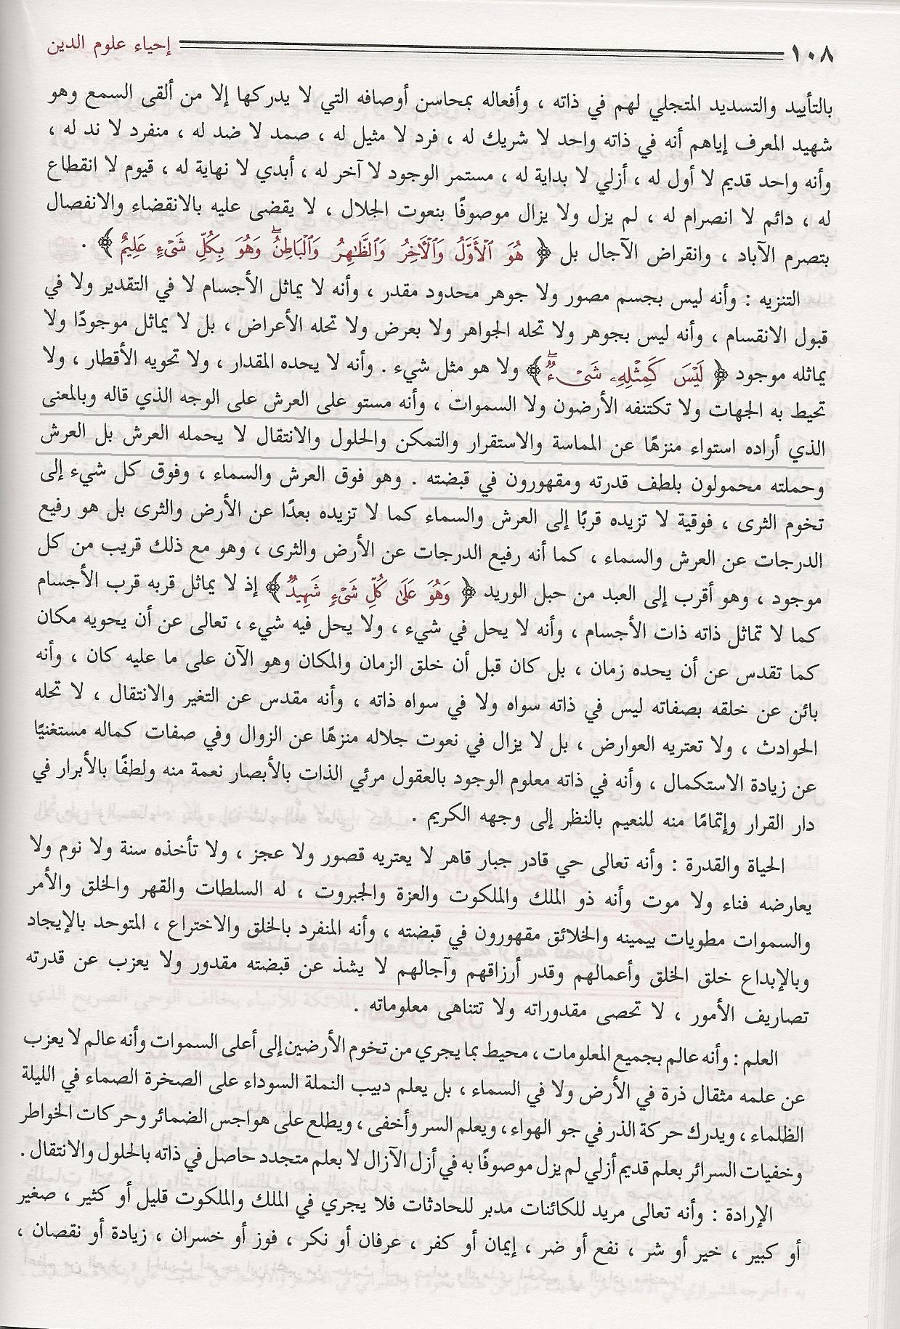 ١٠٨ إحياء علوم الدين
بالتأييد والتسديد المتجلي لهم في ذاته ، وأفعاله بمحاسن أوصافه التي لا يدركها إلا من ألقى السمع وهو
شهيد المعرف إياهم أنه في ذاته واحد لا شريك له ، فرد لا مثيل له ، صمد لا ضد له ، منفرد لا ند له ،
وأنه واحد قديم لا أول له ، أزلي لا بداية له ، مستمر الوجود لا آخر له ، أبدي لا نهاية له ، قيوم لا انقطاع
له ، دائم لا انصرام له ، لم يزل ولا يزال موصوفًا بنعوت الجلال ، لا يقضى عليه بالانقضاء والانفصال
بتصرم الآباد ، وانقراض الآجال بل ﴿ هُوَ ٱلْأَوَّلُ وَٱلْآخِرُ وَٱلظَّٰهِرُ وَٱلْبَاطِنُۖ وَهُوَ بِكُلِّ شَىْءٍ عَلِيمٌ ﴾ .
التنزيه : وأنه ليس بجسم مصور ولا جوهر محدود مقدر ، وأنه لا يماثل الأجسام لا في التقدير ولا في
قبول الانقسام ، وأنه ليس بجوهر ولا تحله الجواهر ولا بعرض ولا تحله الأعراض ، بل لا يماثل موجودًا ولا
يماثله موجود ﴿ لَيْسَ كَمِثْلِهِۦ شَىْءٌۖ ﴾ ولا هو مثل شيء . وأنه لا يحده المقدار ، ولا تحويه الأقطار ، ولا
تحيط به الجهات ولا تكتنفه الأرضون ولا السموات ، وأنه مستو على العرش على الوجه الذي قاله وبالمعنى
الذي أراده استواء منزهًا عن المماسة والاستقرار والتمكن والحلول والانتقال لا يحمله العرش بل العرش
وحملته محمولون بلطف قدرته ومقهورون في قبضته . وهو فوق العرش والسماء ، وفوق كل شيء إلى
تخوم الثرى ، فوقية لا تزيده قربًا إلى العرش والسماء كما لا تزيده بعدًا عن الأرض والثرى بل هو رفيع
الدرجات عن العرش والسماء ، كما أنه رفيع الدرجات عن الأرض والثرى ، وهو مع ذلك قريب من كل
موجود ، وهو أقرب إلى العبد من حبل الوريد ﴿ وَهُوَ عَلَىٰ كُلِّ شَىْءٍ شَهِيدٌ ﴾ إذ لا يماثل قربه قرب الأجسام
كما لا تماثل ذاته ذات الأجسام ، وأنه لا يحل في شيء ، ولا يحل فيه شيء ، تعالى عن أن يحويه مكان
كما تقدس عن أن يحده زمان ، بل كان قبل أن خلق الزمان والمكان وهو الآن على ما عليه كان ، وأنه
بائن عن خلقه بصفاته ليس في ذاته سواه ولا في سواه ذاته ، وأنه مقدس عن التغير والانتقال ، لا تحله
الحوادث ، ولا تعتريه العوارض ، بل لا يزال في نعوت جلاله منزهًا عن الزوال وفي صفات كماله مستغنيًا
عن زيادة الاستكمال ، وأنه في ذاته معلوم الوجود بالعقول مرئي الذات بالأبصار نعمة منه ولطفًا بالأبرار في
دار القرار وإتمامًا منه للنعيم بالنظر إلى وجهه الكريم .
الحياة والقدرة : وأنه تعالى حي قادر جبار قاهر لا يعتريه قصور ولا عجز ، ولا تأخذه سنة ولا نوم ولا
يعارضه فناء ولا موت وأنه ذو الملك والملكوت والعزة والجبروت ، له السلطات والقهر والخلق والأمر
والسموات مطويات بيمينه والخلائق مقهورون في قبضته ، وأنه المنفرد بالخلق والاختراع ، المتوحد بالإيجاد
وبالإبداع خلق الخلق وأعمالهم وقدر أرزاقهم وآجالهم لا يشذ عن قبضته مقدور ولا يعزب عن قدرته
تصاريف الأمور ، لا تحصى مقدوراته ولا تتناهى معلوماته .
العلم : وأنه عالم بجميع المعلومات ، محيط بما يجري من تخوم الأرضين إلى أعلى السموات وأنه عالم لا يعزب
عن علمه مثقال ذرة في الأرض ولا في السماء ، بل يعلم دبيب النملة السوداء على الصخرة الصماء في الليلة
الظلماء ، ويدرك حركة الذر في جو الهواء ، ويعلم السر وأخفى ، ويطلع على هواجس الضمائر وحركات الخواطر
وخفيات السرائر بعلم قديم أزلي لم يزل موصوفًا به في أزل الآزال لا بعلم متجدد حاصل في ذاته بالحلول والانتقال .
الإرادة : وأنه تعالى مريد للكائنات مدبر للحادثات فلا يجري في الملك والملكوت قليل أو كثير ، صغير
أو كبير ، خير أو شر ، نفع أو ضر ، إيمان أو كفر ، عرفان أو نكر ، فوز أو خسران ، زيادة أو نقصان ،